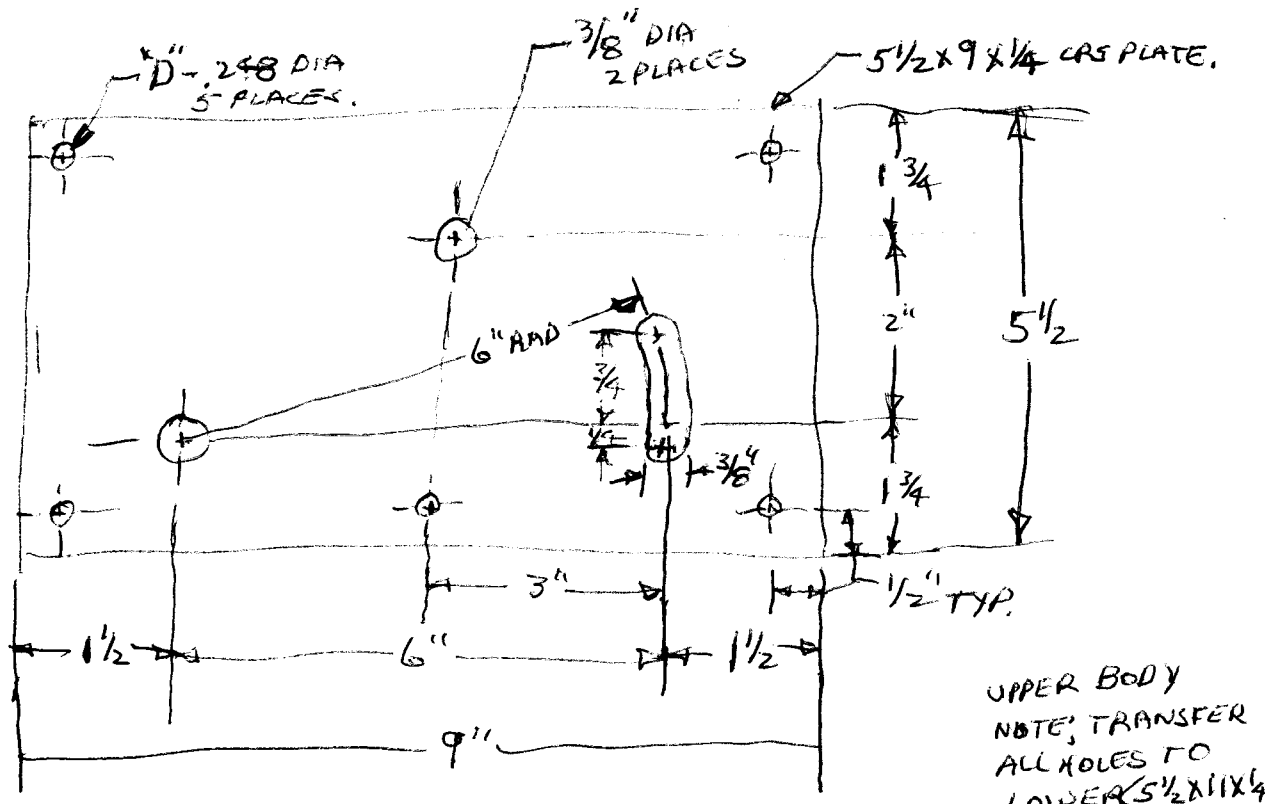 "D" - .248 DIA
5 PLACES.
3/8" DIA
2 PLACES
5 1/2 X 9 X 1/4 CRS PLATE.
1 3/4
2"
5 1/2
6" RAD
3/4
1/4
3/8"
1 3/4
3"
1/2" TYP.
1 1/2
6"
1 1/2
9"
UPPER BODY
NOTE; TRANSFER
ALL HOLES TO
LOWER 5 1/2 X 11 X 1/4